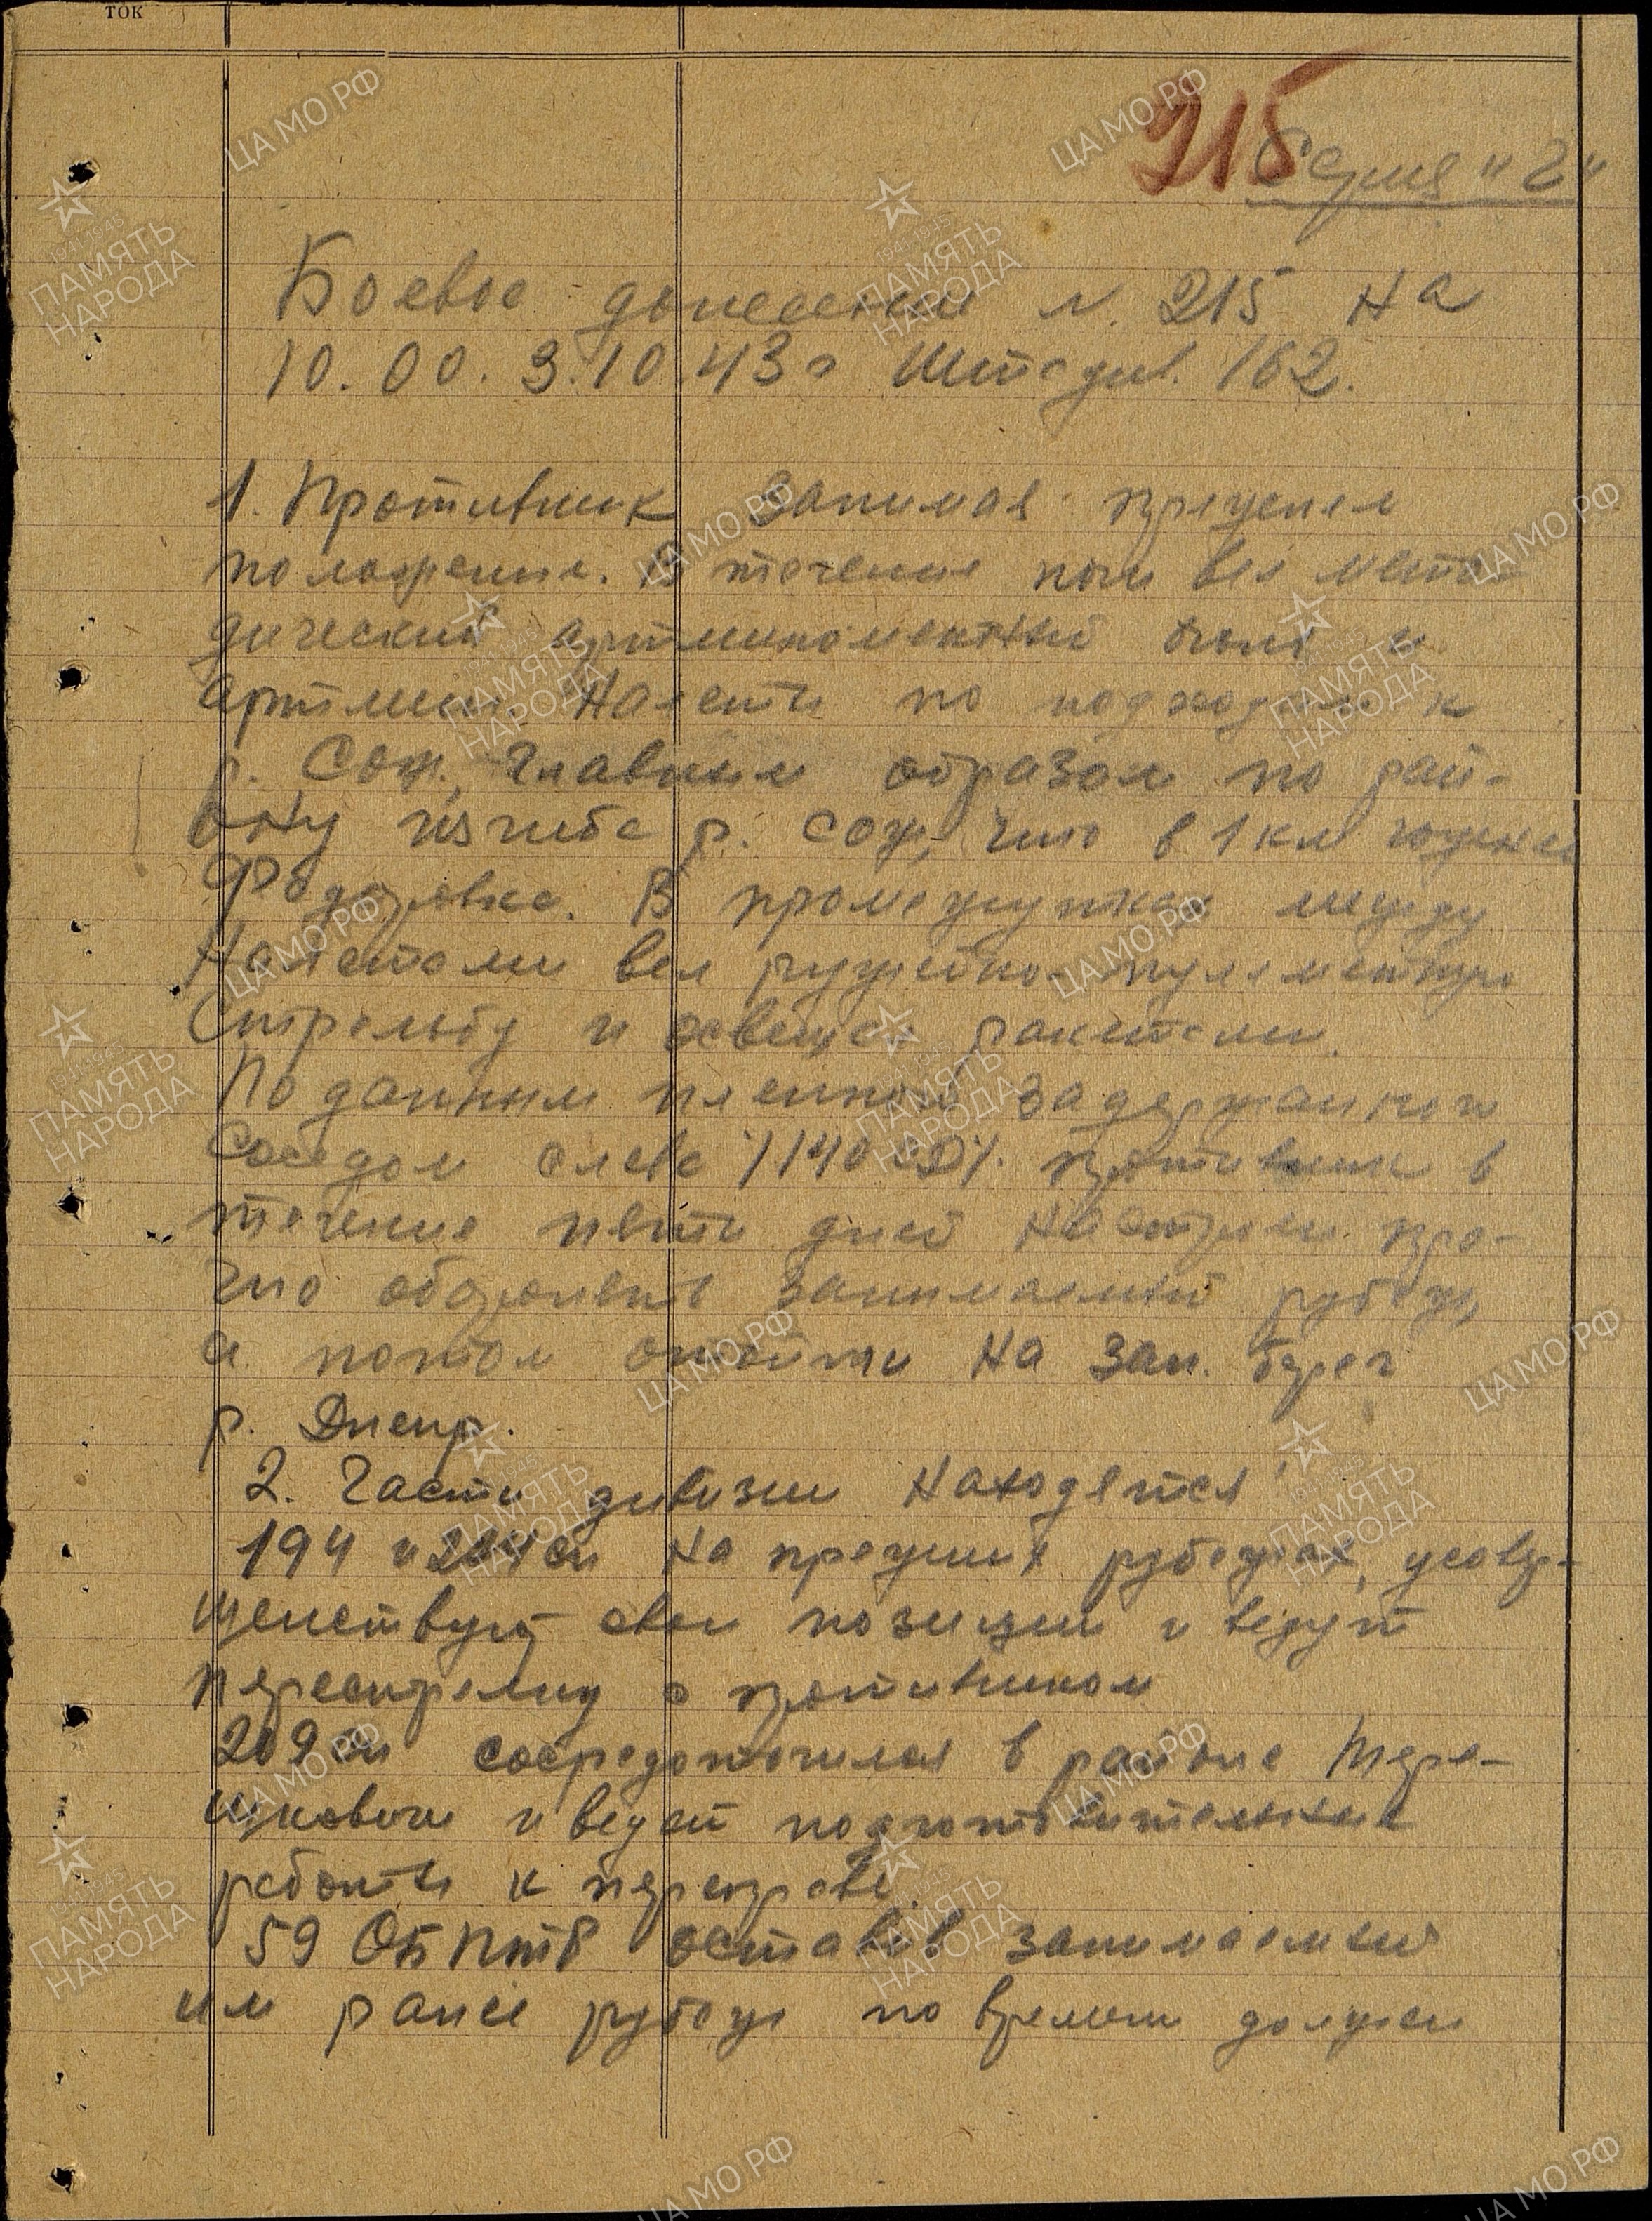 ток
215
Серия "Г"
Боевое донесение N. 215 на
10.00. 3.10.43 г Штадив. 162.
1. Противник занимая прежнее
положение. В течение ночи вел мето-
дический артминометный огонь и
артмин. налеты по подходам к
р. Сож, главным образом по рай-
ону изгиба р. Сож, что в 1 км южнее
Федоровка. В промежутках между
налетами вел ружейно-пулеметную
стрельбу и освещал ракетами.
По данным пленного задержанного
соседом слева /140 СД/. противник в
течение пяти дней настроен про-
чно оборонять занимаемый рубеж,
а потом отойти на зап. берег
р. Днепр.
2. Части дивизии находятся
194 и 224 сп на прежних рубежах, усовер-
шенствуют свои позиции и ведут
перестрелку с противником
209 сп сосредоточился в районе Тере-
шковичи и ведет подготовительные
работы к переправе.
59 ОБ ПТР оставив занимаемый
им ранее рубеж по времени должен
ЦА МО РФ
1941-1945
ПАМЯТЬ
НАРОДА